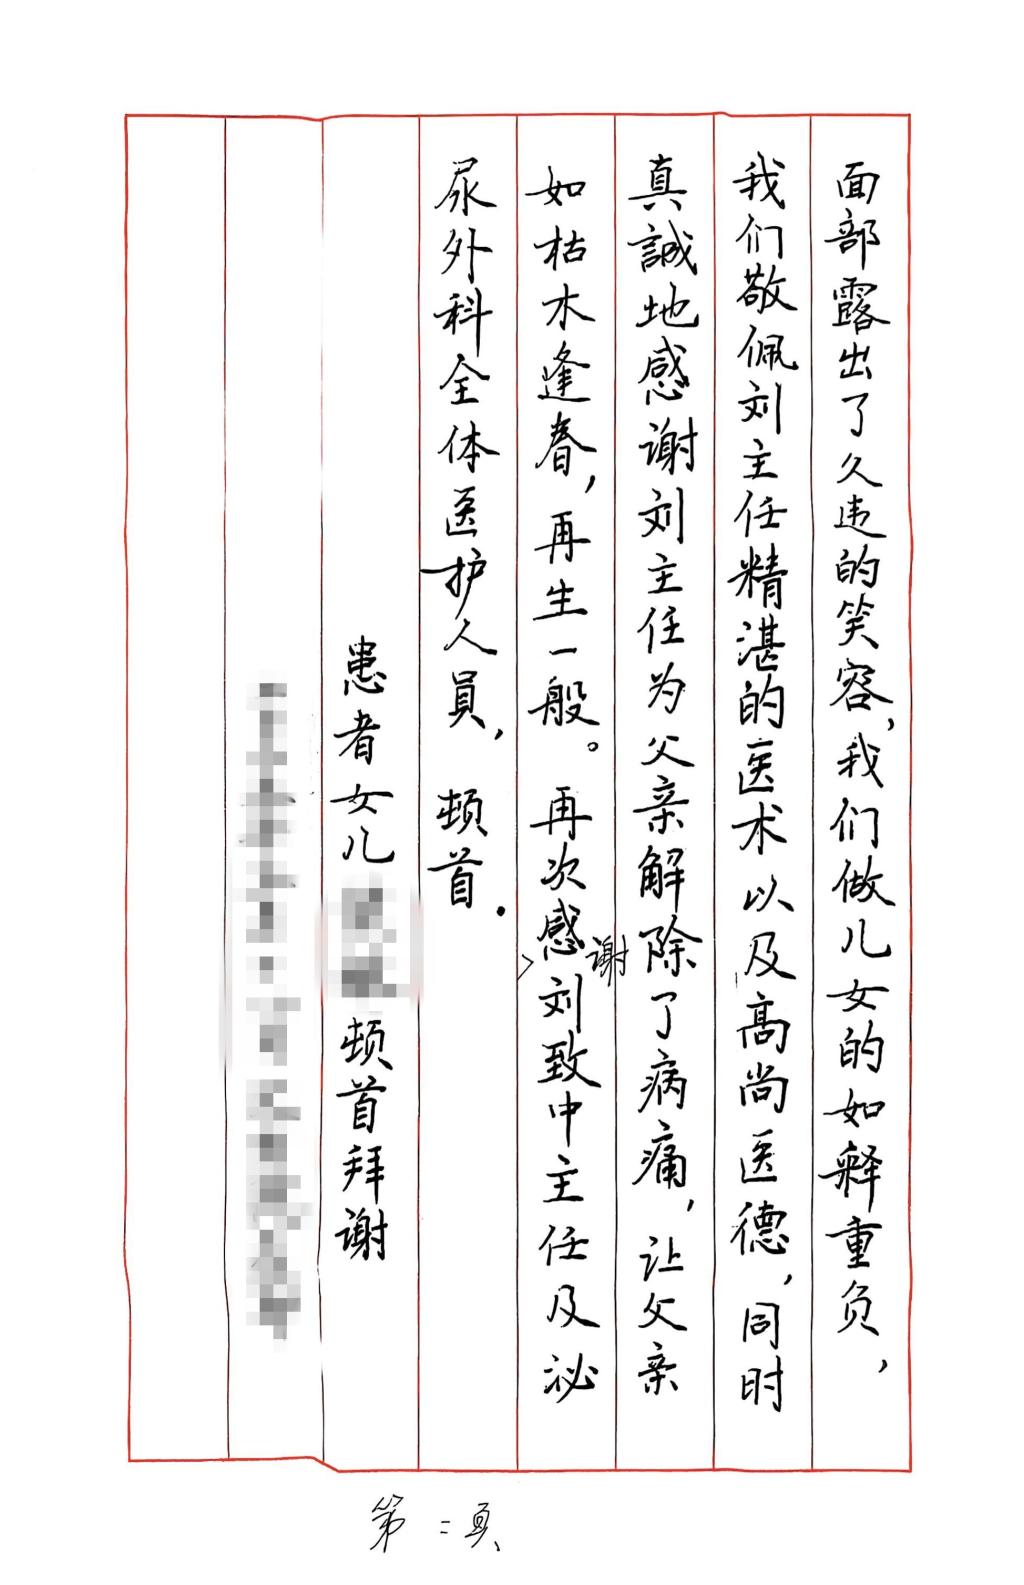 面部露出了久违的笑容，我们做儿女的如释重负，
我们敬佩刘主任精湛的医术以及高尚医德，同时
真誠地感谢刘主任为父亲解除了病痛，让父亲
如枯木逢春，再生一般。再次感谢刘致中主任及泌
尿外科全体医护人員，顿首.
患者女儿顿首拜谢
第二頁